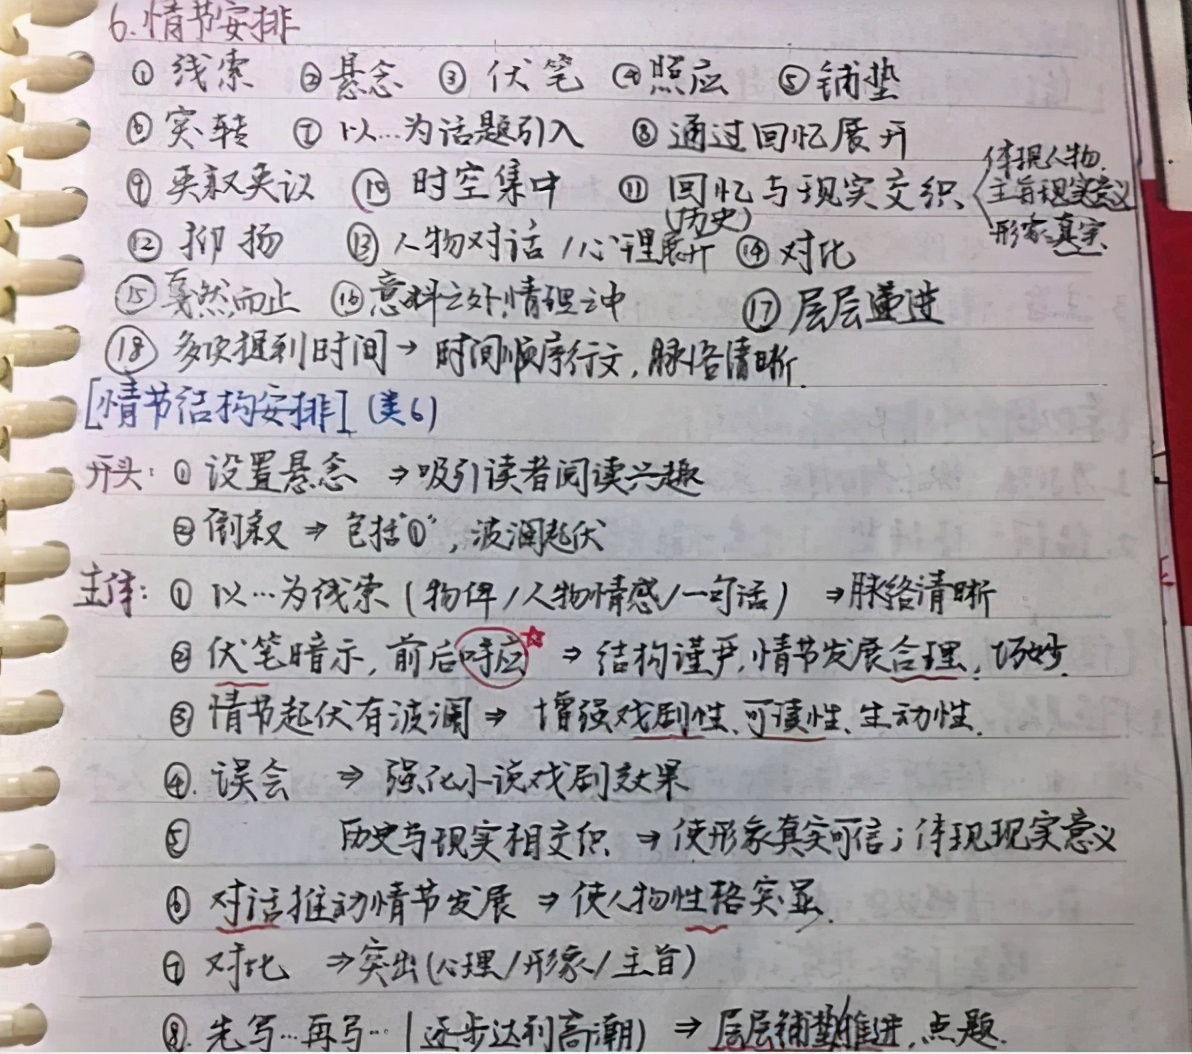 6.情节安排
①线索 ②悬念 ③伏笔 ④照应 ⑤铺垫
⑥突转 ⑦以…为话题引入 ⑧通过回忆展开
⑨夹叙夹议 ⑩时空集中 ⑪回忆与现实交织
(历史)
体现人物.
主旨现实意义
形象真实
⑫抑扬 ⑬人物对话/心理展开 ⑭对比
⑮戛然而止 ⑯意料之外,情理之中 ⑰层层递进
⑱多次提到时间→时间顺序行文,脉络清晰.
[情节结构安排](类6)
开头:①设置悬念 ⇒吸引读者阅读兴趣
②倒叙⇒包括"①",波澜起伏
主体:①以…为线索(物件/人物情感/一句话) ⇒脉络清晰
②伏笔暗示,前后呼应☆⇒结构谨严,情节发展合理、巧妙.
③情节起伏有波澜⇒增强戏剧性、可读性、生动性.
④.误会 ⇒强化小说戏剧效果
⑤ 历史与现实相交织⇒使形象真实可信;体现现实意义
⑥对话推动情节发展⇒使人物性格突显.
⑦对比 ⇒突出(心理/形象/主旨)
⑧.先写…再写…(逐步达到高潮)⇒层层铺垫推进,点题.